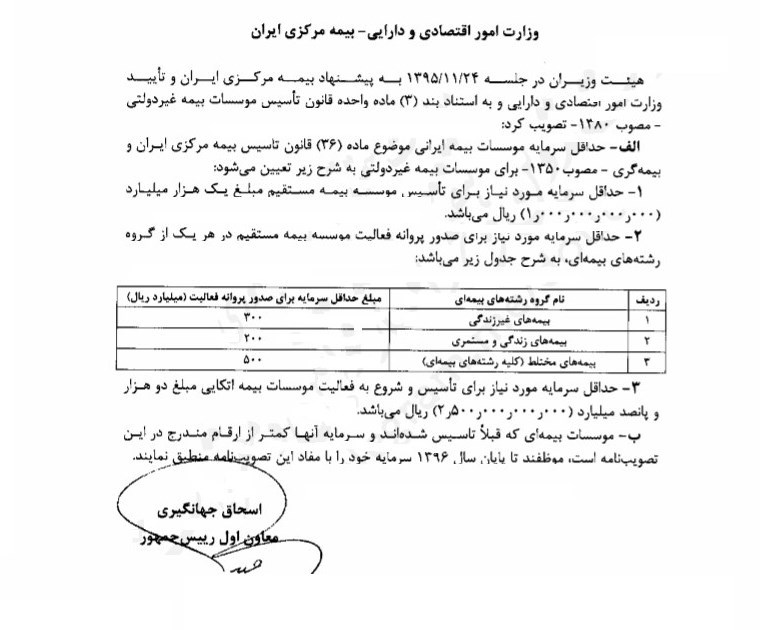 وزارت امور اقتصادی و دارایی- بیمه مرکزی ایران
هیئت وزیران در جلسه ۱۳۹۵/۱۱/۲۴ به پیشنهاد بیمه مرکزی ایران و تأیید
وزارت امور اقتصادی و دارایی و به استناد بند (۳) ماده واحده قانون تأسیس موسسات بیمه غیردولتی
- مصوب ۱۳۸۰- تصویب کرد:
الف- حداقل سرمایه موسسات بیمه ایرانی موضوع ماده (۳۶) قانون تاسیس بیمه مرکزی ایران و
بیمه‌گری - مصوب ۱۳۵۰- برای موسسات بیمه غیردولتی به شرح زیر تعیین می‌شود:
۱- حداقل سرمایه مورد نیاز برای تأسیس موسسه بیمه مستقیم مبلغ یک هزار میلیارد
(۱ر۰۰۰ر۰۰۰ر۰۰۰ر۰۰۰) ریال می‌باشد.
۲- حداقل سرمایه مورد نیاز برای صدور پروانه فعالیت موسسه بیمه مستقیم در هر یک از گروه
رشته‌های بیمه‌ای، به شرح جدول زیر می‌باشد:
ردیف نام گروه رشته‌های بیمه‌ای مبلغ حداقل سرمایه برای صدور پروانه فعالیت (میلیارد ریال)
۱ بیمه‌های غیرزندگی ۳۰۰
۲ بیمه‌های زندگی و مستمری ۲۰۰
۳ بیمه‌های مختلط (کلیه رشته‌های بیمه‌ای) ۵۰۰
۳- حداقل سرمایه مورد نیاز برای تأسیس و شروع به فعالیت موسسات بیمه اتکایی مبلغ دو هزار
و پانصد میلیارد (۲ر۵۰۰ر۰۰۰ر۰۰۰ر۰۰۰) ریال می‌باشد.
ب- موسسات بیمه‌ای که قبلاً تاسیس شده‌اند و سرمایه آنها کمتر از ارقام مندرج در این
تصویب‌نامه است، موظفند تا پایان سال ۱۳۹۶ سرمایه خود را با مفاد این تصویب‌نامه منطبق نمایند.
اسحاق جهانگیری
معاون اول رییس‌جمهور